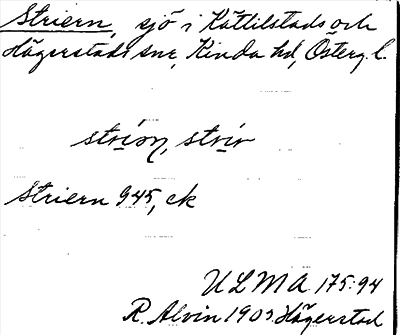 Striern, sjö i Kättilstads och
Hägerstads snr, Kinda hd, Österg. l.
Striern 945, ek
ULMA 175:94
R. Alvin 1903 Hägerstad